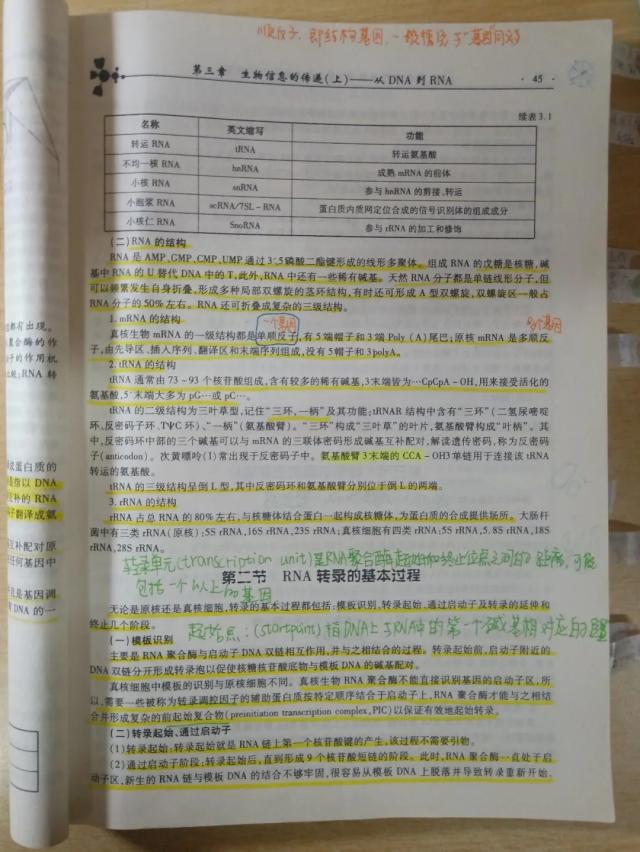 顺反子，即结构基因，一般情况下"基因"同义
第三章 生物信息的传递(上)——从 DNA 到 RNA · 45 ·
续表 3.1
名称 英文缩写 功能
转运 RNA tRNA 转运氨基酸
不均一核 RNA hnRNA 成熟 mRNA 的前体
小核 RNA snRNA 参与 hnRNA 的剪接、转运
小胞浆 RNA scRNA/7SL-RNA 蛋白质内质网定位合成的信号识别体的组成成分
小核仁 RNA SnoRNA 参与 rRNA 的加工和修饰
(二) RNA 的结构
RNA 是 AMP,GMP,CMP,UMP 通过 3',5'磷酸二酯键形成的线形多聚体。组成 RNA 的戊糖是核糖,碱
基中 RNA 的 U 替代 DNA 中的 T,此外,RNA 中还有一些稀有碱基。天然 RNA 分子都是单链线形分子,但
可以频繁发生自身折叠,形成多种局部双螺旋的茎环结构,有时还可形成 A 型双螺旋,双螺旋区一般占
RNA 分子的 50% 左右。RNA 还可折叠成复杂的三级结构。
1. mRNA 的结构
一个基因 多个基因
真核生物 mRNA 的一级结构都是单顺反子,有 5'端帽子和 3'端 Poly (A) 尾巴;原核 mRNA 是多顺反
子,由先导区、插入序列、翻译区和末端序列组成,没有 5'帽子和 3'polyA。
2. tRNA 的结构
tRNA 通常由 73-93 个核苷酸组成,含有较多的稀有碱基,3'末端皆为…CpCpA-OH,用来接受活化的
氨基酸,5'末端大多为 pG…或 pC…。
tRNA 的二级结构为三叶草型,记住"三环,一柄"及其功能;tRNAR 结构中含有"三环"(二氢尿嘧啶
环、反密码子环、TΨC 环)、"一柄"(氨基酸臂)。"三环"构成"三叶草"的叶片,氨基酸臂构成"叶柄"。其
中,反密码环中部的三个碱基可以与 mRNA 的三联体密码形成碱基互补配对,解读遗传密码,称为反密码
子(anticodon)。次黄嘌呤(I)常出现于反密码子中。氨基酸臂 3'末端的 CCA-OH3'单链用于连接该 tRNA
转运的氨基酸。
tRNA 的三级结构呈倒 L 型,其中反密码环和氨基酸臂分别位于倒 L 的两端。
3. rRNA 的结构
rRNA 占总 RNA 的 80% 左右,与核糖体结合蛋白一起构成核糖体,为蛋白质的合成提供场所。大肠杆
菌中有三类 rRNA (原核):5S rRNA,16S rRNA,23S rRNA;真核细胞有四类 rRNA;5S rRNA,5.8S rRNA,18S
rRNA,28S rRNA。
转录单元(transcription unit)是RNA聚合酶起始和终止位点之间的距离,可能
包括一个以上的基因
第二节 RNA 转录的基本过程
无论是原核还是真核细胞,转录的基本过程都包括:模板识别、转录起始、通过启动子及转录的延伸和
终止几个阶段。
起始点:(startpoint)指DNA上与RNA中的第一个碱基相对应的
(一)模板识别
主要是 RNA 聚合酶与启动子 DNA 双链相互作用,并与之相结合的过程。转录起始前,启动子附近的
DNA 双链分开形成转录泡以促使核糖核苷酸底物与模板 DNA 的碱基配对。
真核细胞中模板的识别与原核细胞不同。真核生物 RNA 聚合酶不能直接识别基因的启动子区,所
以,需要一些被称为转录调控因子的辅助蛋白质按特定顺序结合于启动子上,RNA 聚合酶才能与之相结
合并形成复杂的前起始复合物(preinitiation transcription complex,PIC)以保证有效地起始转录。
(二)转录起始、通过启动子
(1)转录起始:转录起始就是 RNA 链上第一个核苷酸键的产生,该过程不需要引物。
(2)通过启动子阶段:转录起始后,直到形成 9 个核苷酸短链的阶段。此时,RNA 聚合酶一直处于启
动子区,新生的 RNA 链与模板 DNA 的结合不够牢固,很容易从模板 DNA 上脱落并导致转录重新开始。